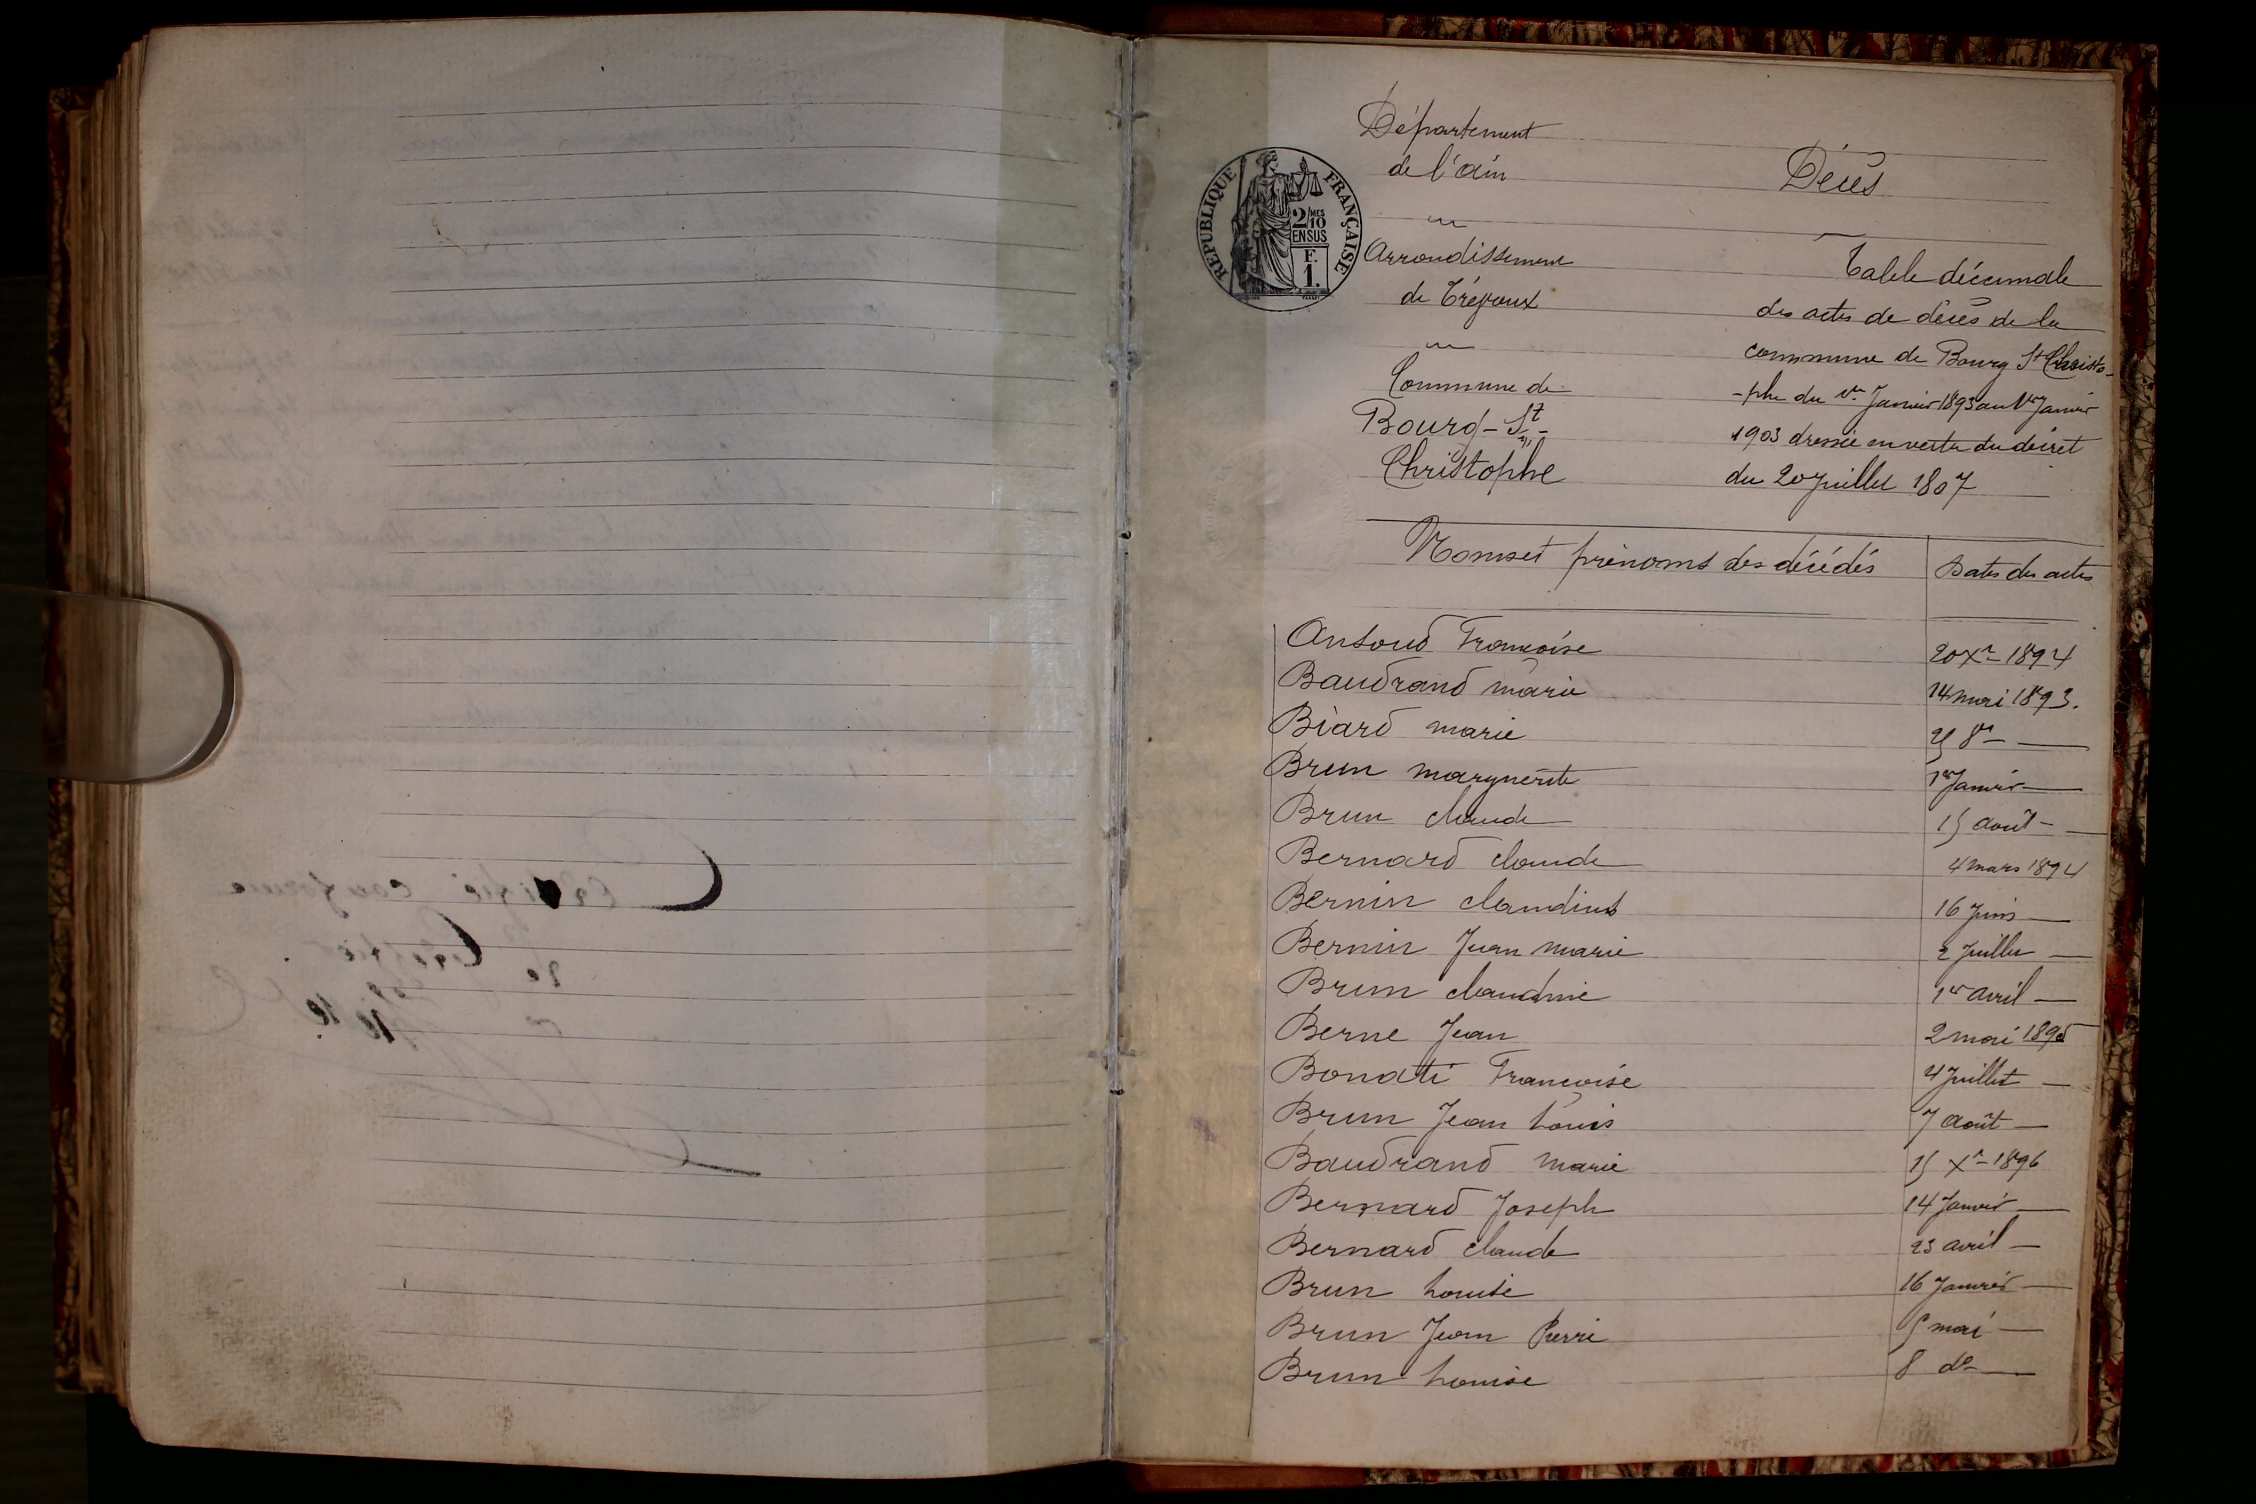 Département
de l'ain
Arrondissement
de Trévoux
Commune de
Bourg-St-
Christophe
REPUBLIQUE FRANÇAISE
2/MES
10
EN SUS
F.
1.
Décès
Table décennale
des actes de décès de la
commune de Bourg St Christo-
-phe du 1er Janvier 1893 au 1er Janvier
1903 dressée en vertu du décret
du 20 Juillet 1807
Noms et prénoms des décédés Dates des actes
Ansoud Françoise 20 Xre 1894
Baudrand marie 14 mai 1893.
Biard marie 25 8re —
Brun marguerite 1er Janvier —
Brun claude 15 août —
Bernard claude 4 mars 1894
Bernin claudius 16 Juin —
Bernin Jean marie 2 Juillet —
Brun claudine 1er avril —
Berne Jean 2 mai 1895
Bonati Françoise 4 Juillet —
Brun Jean Louis 7 août —
Baudrand marie 15 Xre 1896
Bernard Joseph 14 Janvier —
Bernard claude 23 avril —
Brun Louise 16 Janvier —
Brun Jean Pierre 5 mai —
Brun Louise 8 do —